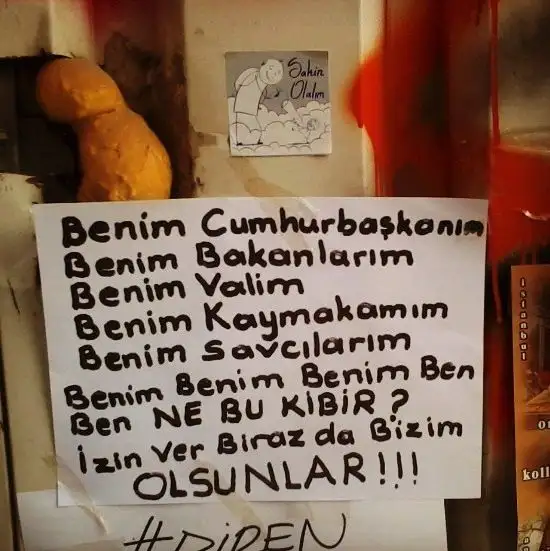 Sakin
Olalım
Benim Cumhurbaşkanım
Benim Bakanlarım
Benim Valim
Benim Kaymakamım
Benim Savcılarım
Benim Benim Benim Ben
Ben NE BU KİBİR ?
İzin ver Biraz da Bizim
OLSUNLAR!!!
#DİREN
istanbul
koll